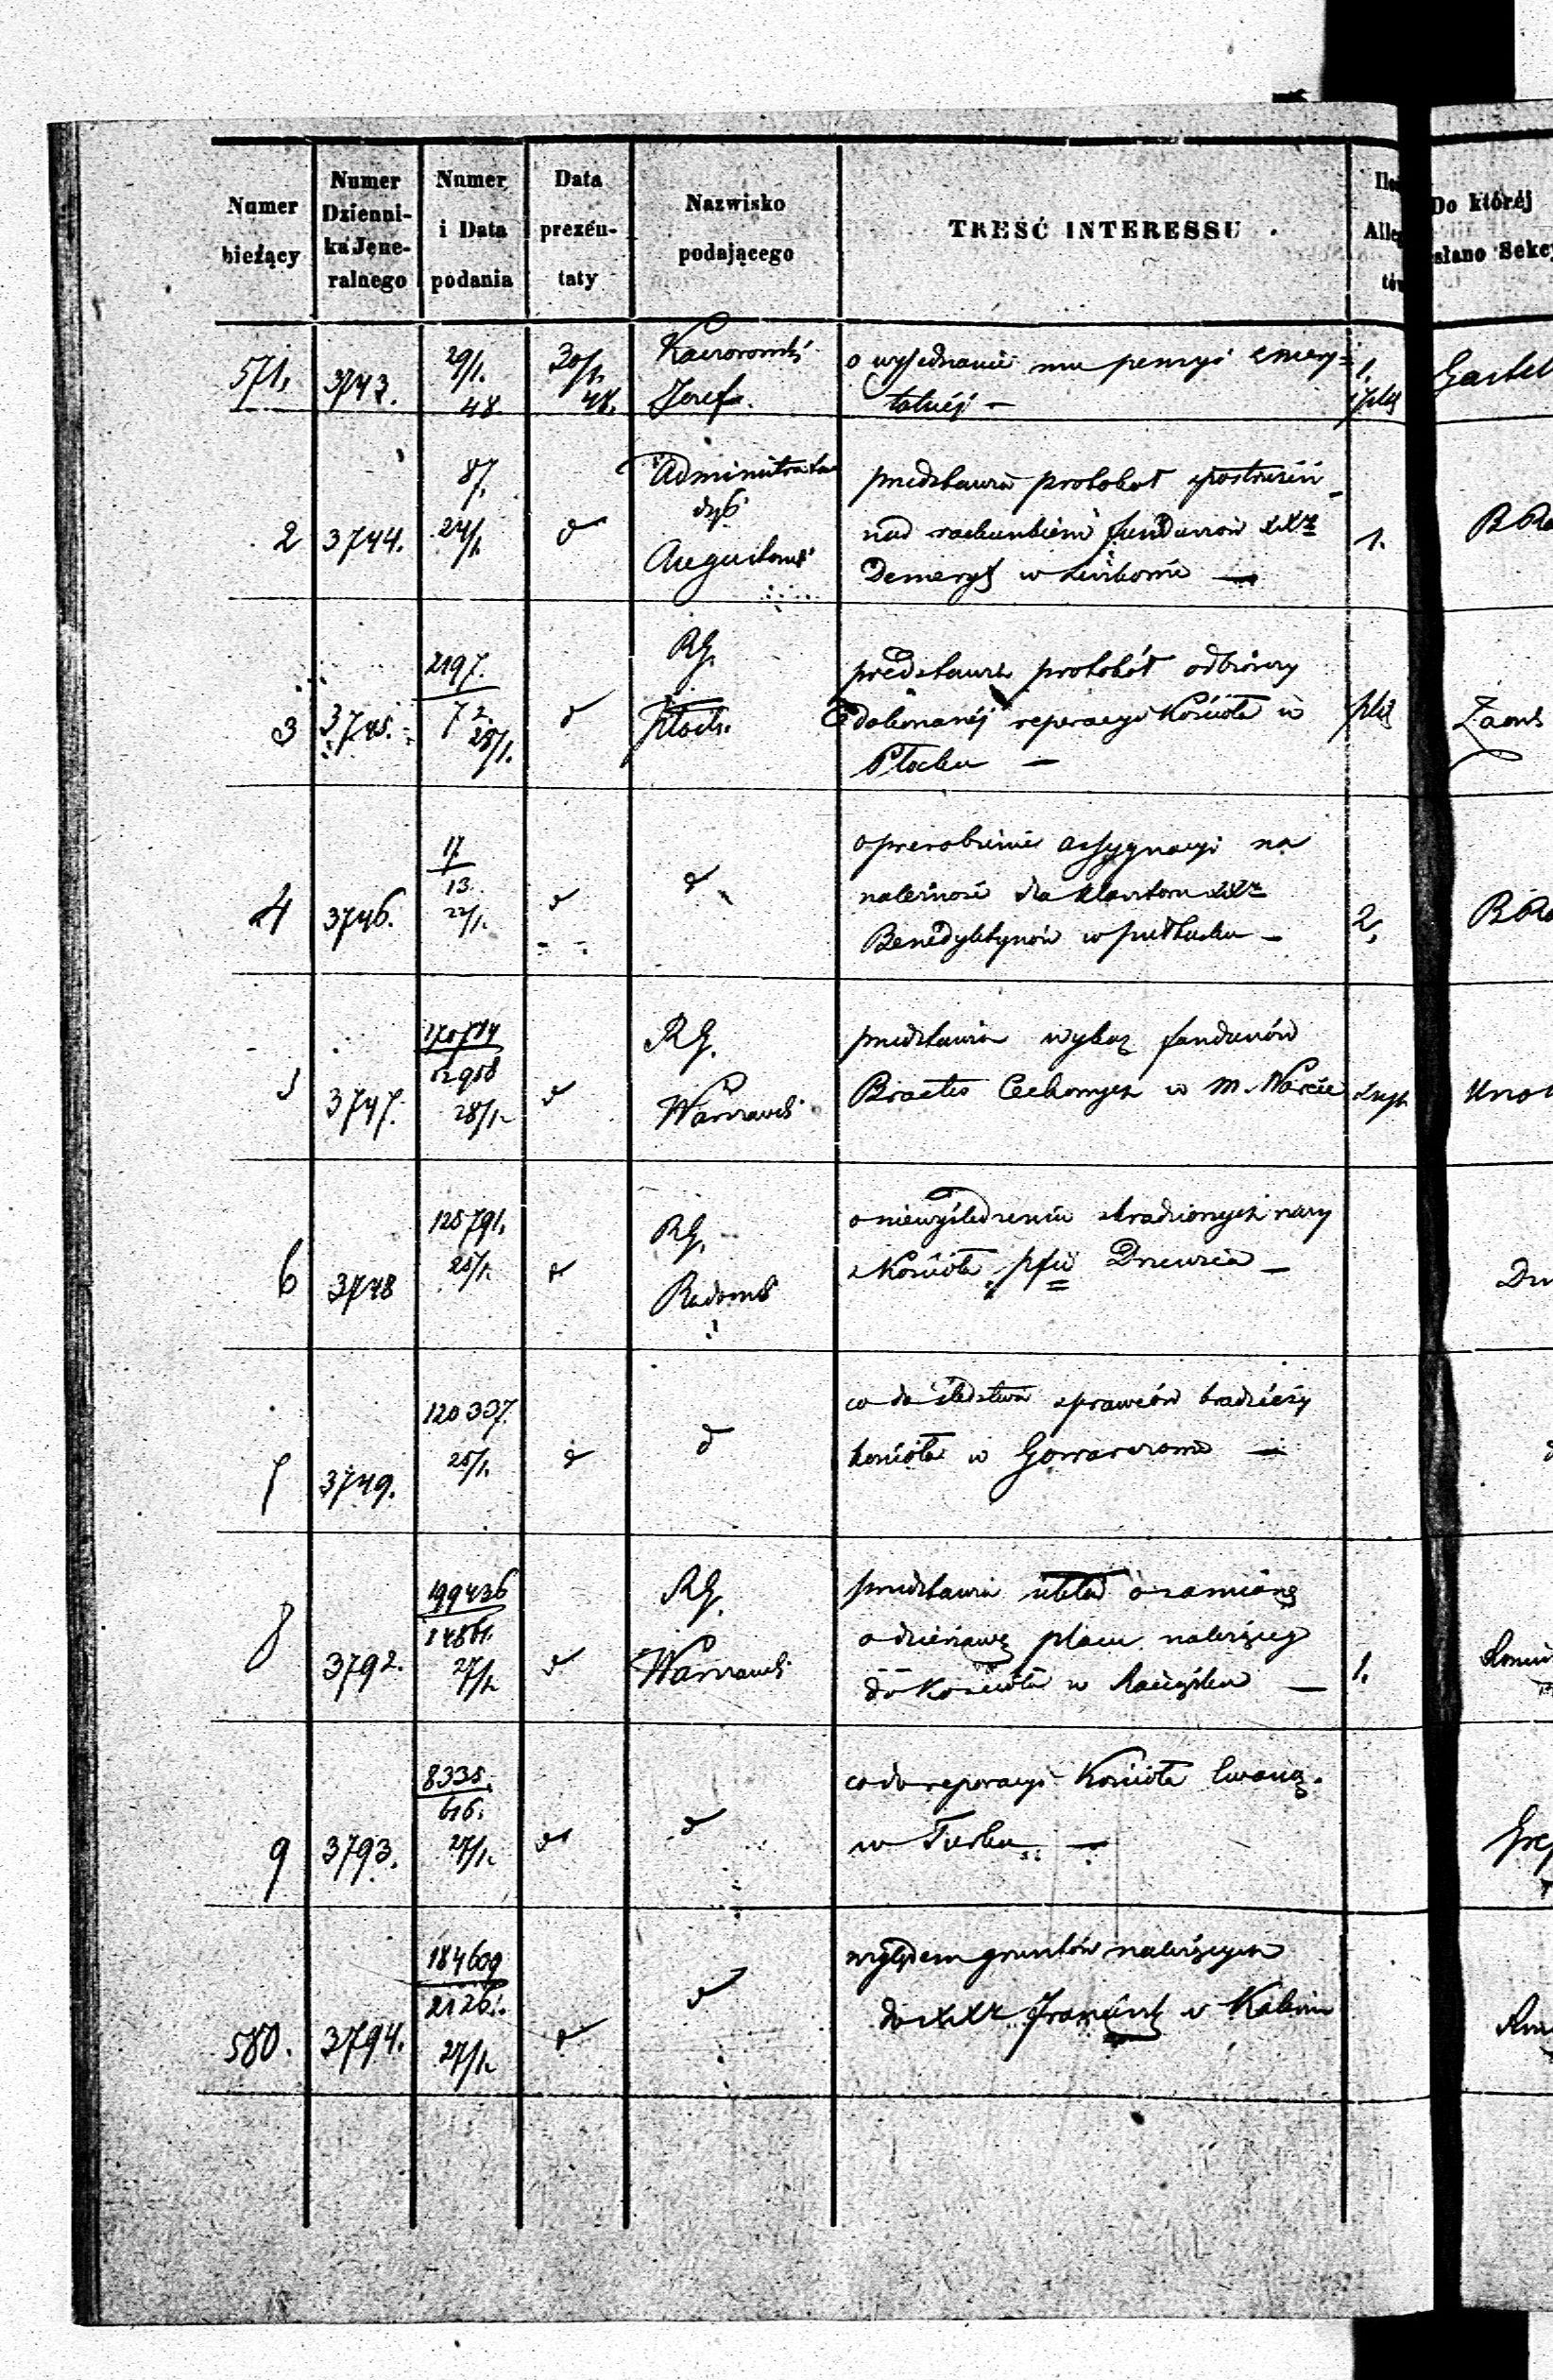 Numer bieżący
Numer Dzienni- ka Jene- ralnego
Numer i Data podania
Data prezen- taty
Nazwisko podającego
TREŚĆ INTERESSU
Do któréj
słano Sekcy
571. 3743. 29/1. 48 30/1. 48. Józef. o wyjednanie mu pensyi emery=
talnéj —
1.
2 3744. 87. 24/1. d Administrator
dyć
Augustows
przedstawia protokół spostrzeżeń
nad rachunkiem funduszów XXy
Demeryt w Liszkowie —
1.
3 3745. 2197. 72 28/1. d RG.
Płock.
przedstawia protokół odbiorczy
dokonanéj reperacyi Kościoła w
Płocku —
4 3746. 17 13. 22/1. d d
o przerobienie assygnacyi na
należność dla klasztoru XXy
Benedyktynów w Pułtusku —
2,
5 3747. 28/1. d RG.
Warszaws
przedstawia wykaz funduszów
Bractw Cechowych w M. Warcie
6 3748 125791. 25/1. d RG.
Radoms
o niewyśledzeniu skradzionych rzeczy
z Kościoła pfii Drzewica —
7 3749. 120337. 25/1. d d
co do śledztwa sprawców kradzieży
kościoła w Gowarczowie —
8 3792. 199436 14861. 27/1. d RG.
Warszaws
przedstawia układ o zamianę
o dzierżawę placu należącego
do Kościoła w
1.
9 3793. 8335. 616. 27/1. d d
co do reperacyi Kościoła Ewang.
w Turku —
580. 3794. 184609 2126. 27/1. d d
względem gruntów należących
do XXy Francisk w Kaliszu